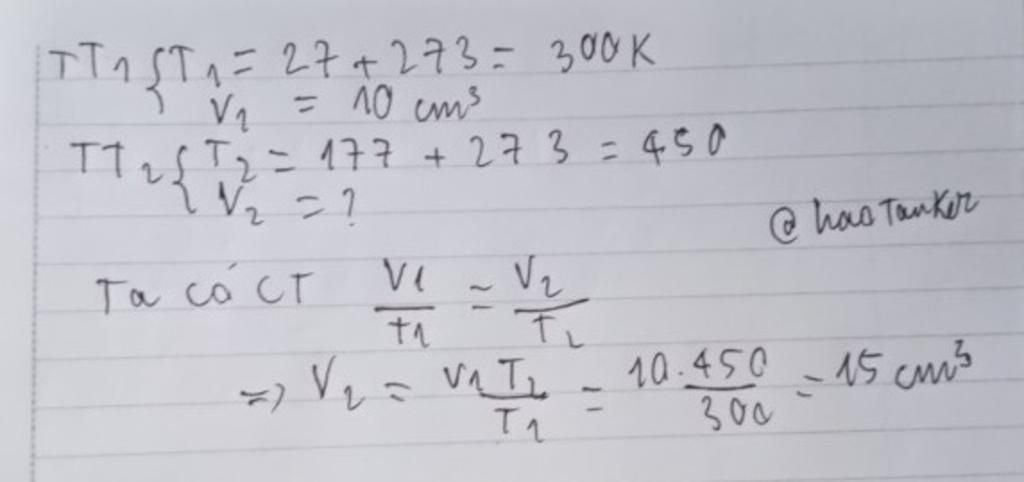 TT1 { T1 = 27 + 273 = 300K
V1 = 10 cm³
TT2 { T2 = 177 + 273 = 450
V2 = ?
@haoTanker
Ta có CT V1/t1 = V2/T2
=> V2 = V1T2/T1 = 10.450/300 = 15 cm³